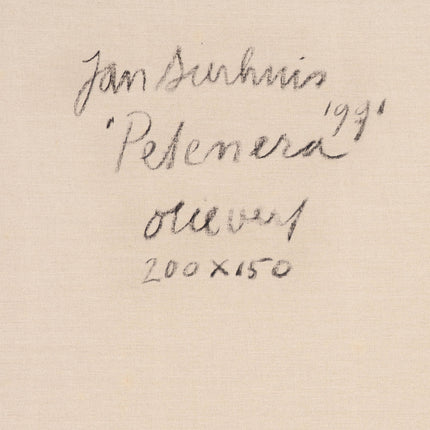 Jan Surhuis
'Petenera' '991
olieverf
200x150